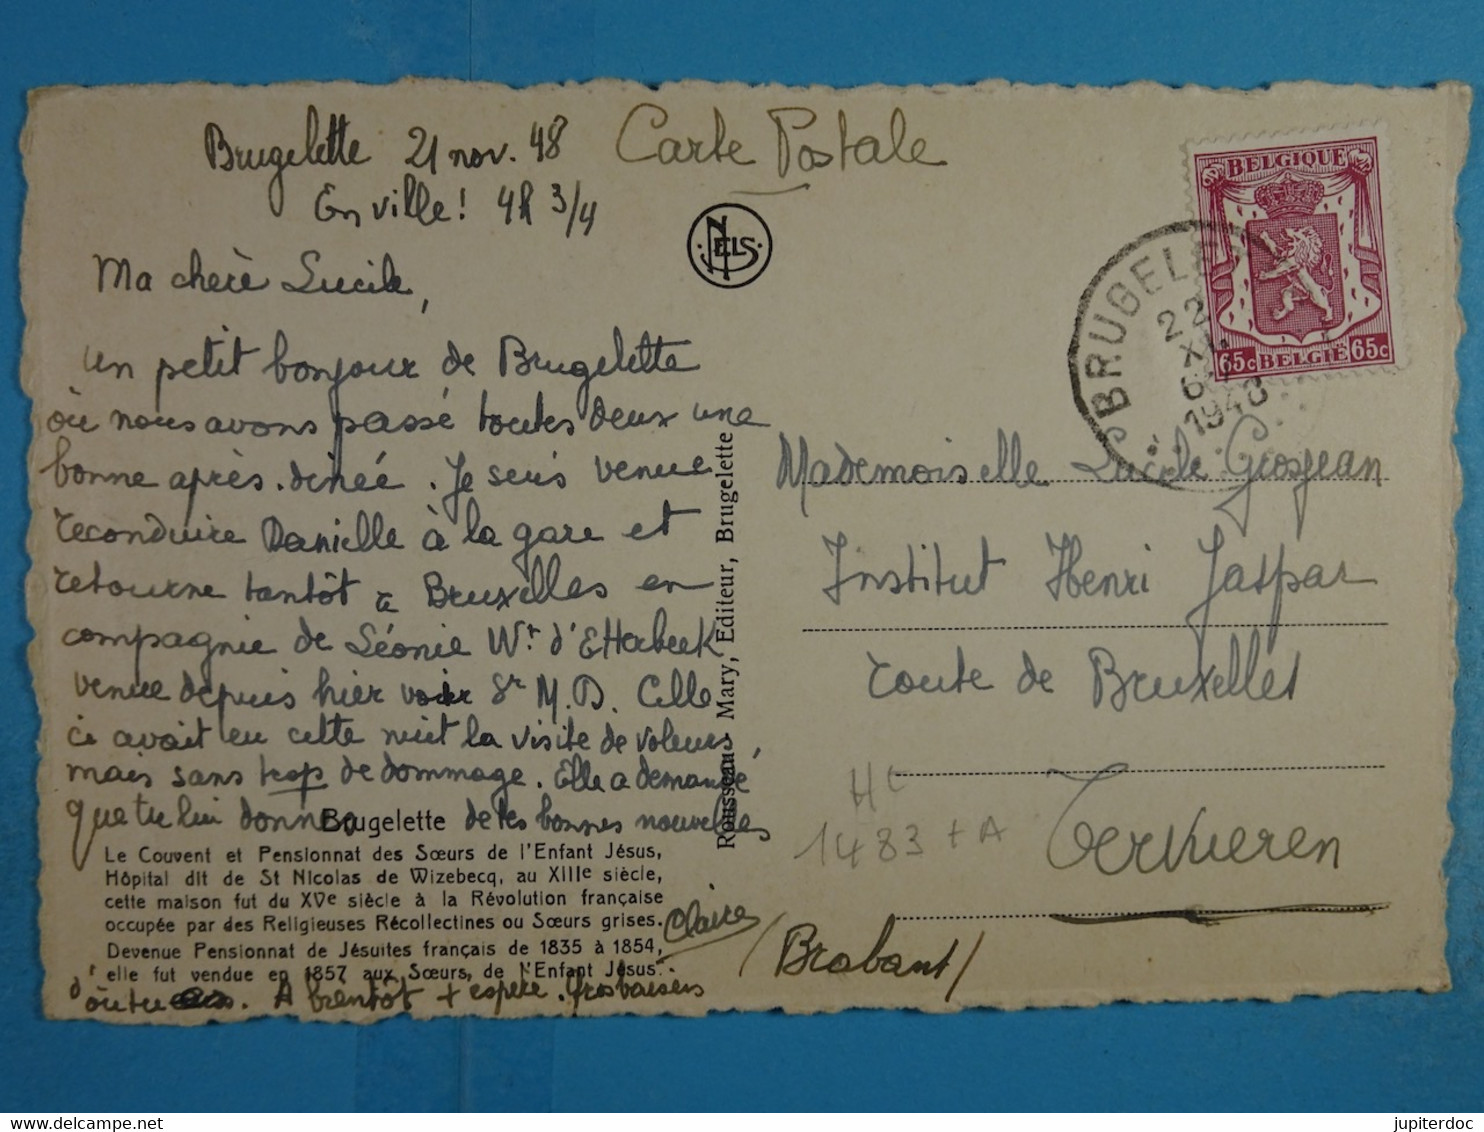 Brugelette 21 nov. 48
En ville! 4h 3/4
Carte Postale
NELS
BELGIQUE
65c BELGIË 65c
BRUGELE
22
XI
1948
Ma chère Lucile,
un petit bonjour de Brugelette
où nous avons passé toutes deux une
bonne après-dinée. Je suis venue
reconduire Danielle à la gare et
retourne tantôt à Bruxelles en
compagnie de Léonie Wt d'Etterbeek
venue depuis hier voir Sr M.D. Celle
ci avait eu cette nuit la visite de voleurs,
mais sans trop de dommage. Elle a demandé
que tu lui donnes de tes bonnes nouvelles
Brugelette
Le Couvent et Pensionnat des Sœurs de l'Enfant Jésus,
Hôpital dit de St Nicolas de Wizebecq, au XIIIe siècle,
cette maison fut du XVe siècle à la Révolution française
occupée par des Religieuses Récollectines ou Sœurs grises.
Devenue Pensionnat de Jésuites français de 1835 à 1854,
elle fut vendue en 1857 aux Sœurs, de l'Enfant Jésus.
d'où tu es. A bientôt + espère. Gros baisers
Claire
Rousseau - Mary, Editeur, Brugelette
Mademoiselle Lucile Grosjean
Institut Henri Jaspar
route de Bruxelles
Tervueren
(Brabant)
1483 + A
jupiterdoc
delcampe.net